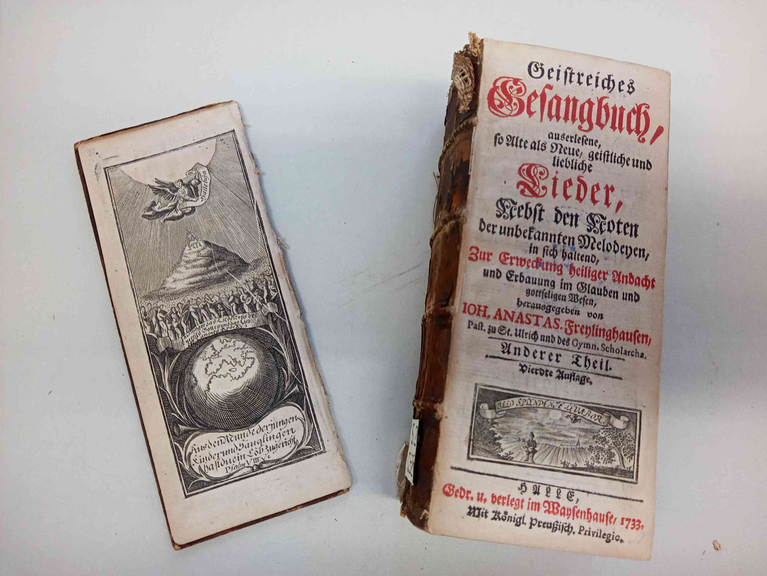 Halleluja
Aus dem Munde der jungen
Kinder und Säuglingen
hastu ein Lob zugericht
Psalm VIII.
Geistreiches
Gesangbuch,
auserlesene,
so Alte als Neue, geistliche und
liebliche
Lieder,
Nebst den Noten
der unbekannten Melodeyen,
in sich haltend,
Zur Erweckung heiliger Andacht
und Erbauung im Glauben und
gottseligen Wesen,
herausgegeben von
IOH. ANASTAS. Freylinghausen,
Past. zu St. Ulrich und des Gymn. Scholarcha.
Anderer Theil.
Vierdte Auflage.
ILLO SPLENDENTE LEVABOR
HALLE,
Gedr. u. verlegt im Waysenhause, 1733.
Mit Königl. Preußisch. Privilegio.